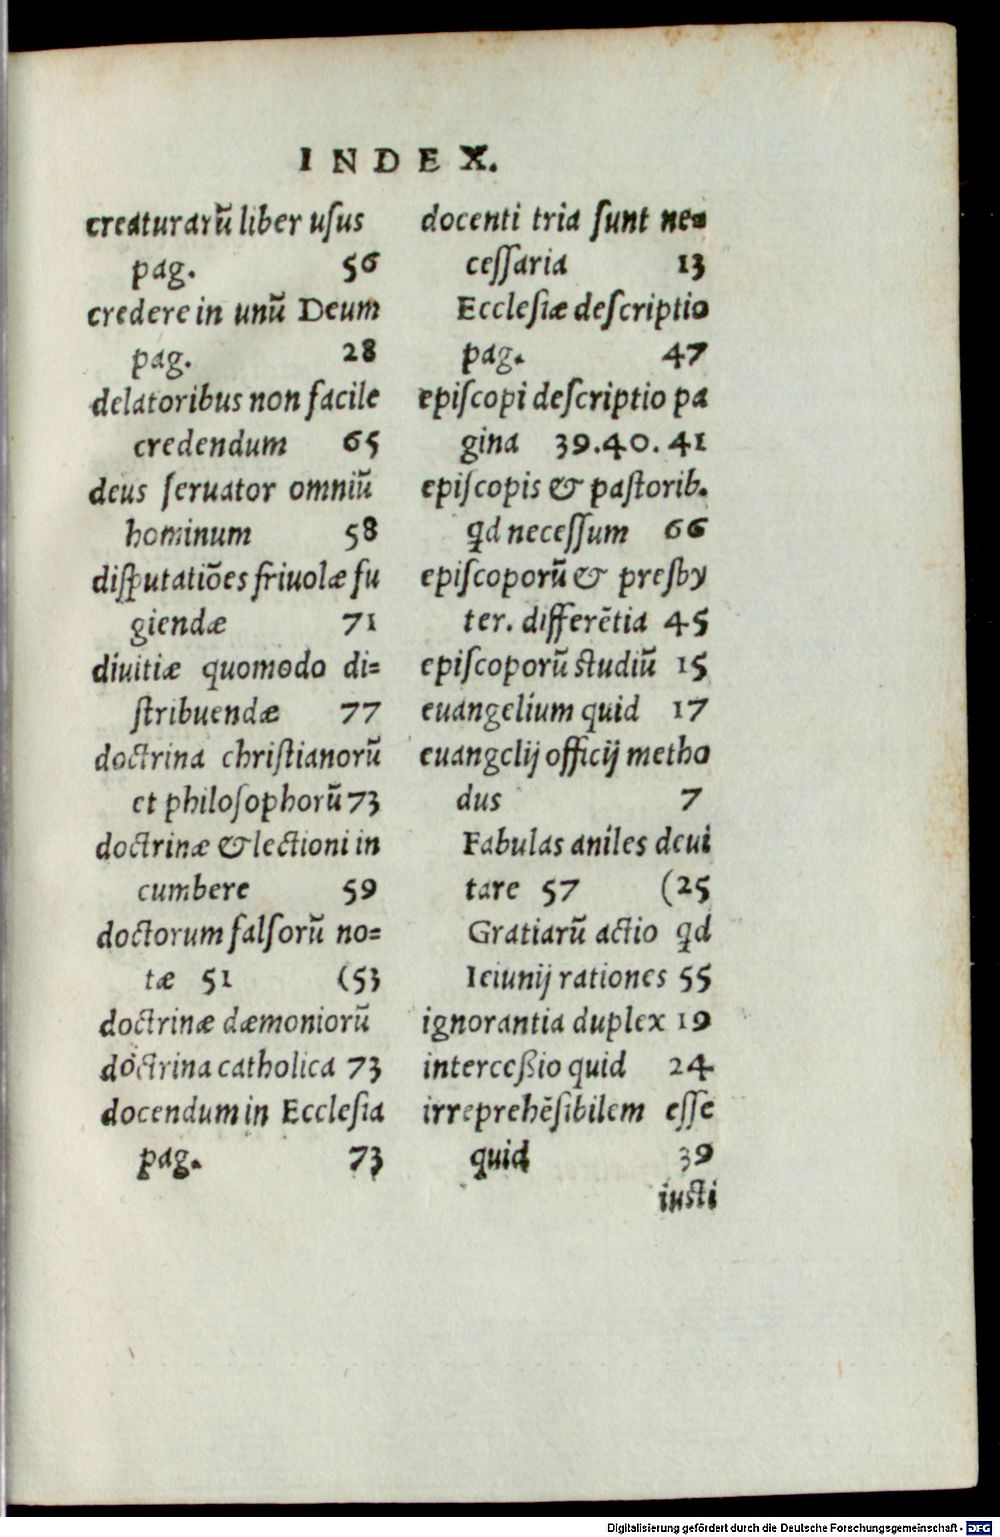 INDEX.
creaturarũ liber uſus
pag. 56
credere in unũ Deum
pag. 28
delatoribus non facile
credendum 65
deus ſeruator omniũ
hominum 58
diſputatiões friuolæ fu
giendæ 71
diuitiæ quomodo di=
ſtribuendæ 77
doctrina chriſtianorũ
et philoſophorũ 73
doctrinæ & lectioni in
cumbere 59
doctorum falſorũ no=
tæ 51 (53
doctrinæ dæmoniorũ
doctrina catholica 73
docendum in Eccleſia
pag. 73
docenti tria ſunt ne=
ceſſaria 13
Eccleſiæ deſcriptio
pag. 47
epiſcopi deſcriptio pa
gina 39.40.41
epiſcopis & paſtorib.
qd neceſſum 66
epiſcoporũ & presby
ter. differẽtia 45
epiſcoporũ studiũ 15
euangelium quid 17
euangelij officij metho
dus 7
Fabulas aniles deui
tare 57 (25
Gratiarũ actio qd
Ieiunij rationes 55
ignorantia duplex 19
interceßio quid 24
irreprehẽſibilem eſſe
quid 39
iusti
Digitalisierung gefördert durch die Deutsche Forschungsgemeinschaft - DFG